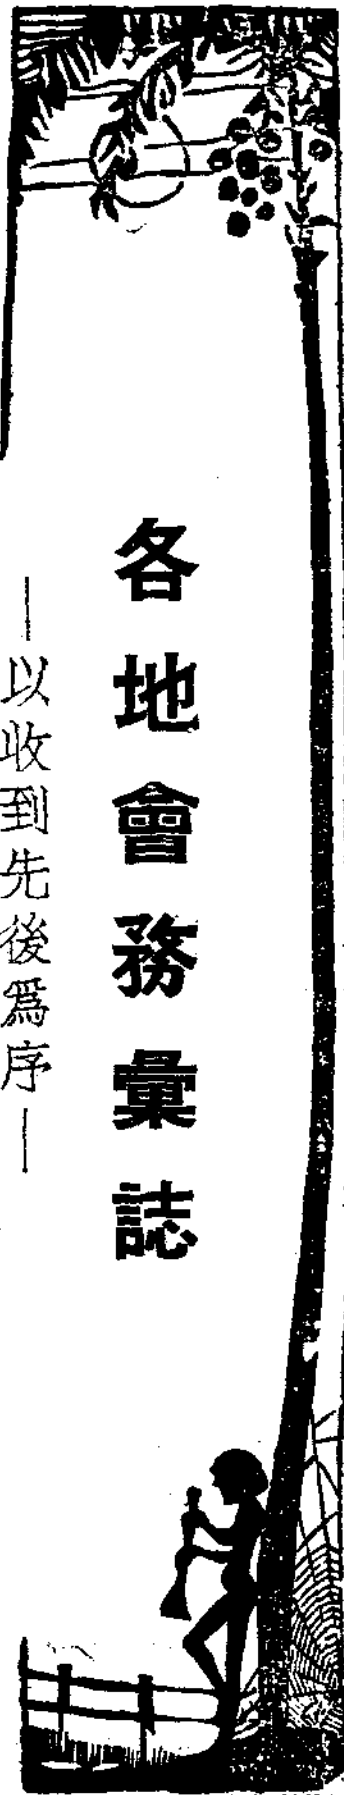 各地會務彙誌
—以收到先後爲序—